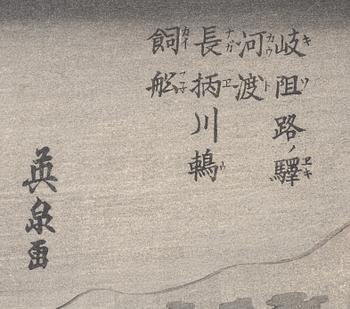 岐阻路ノ驛
河渡
長柄川鵜
飼舩
英泉画